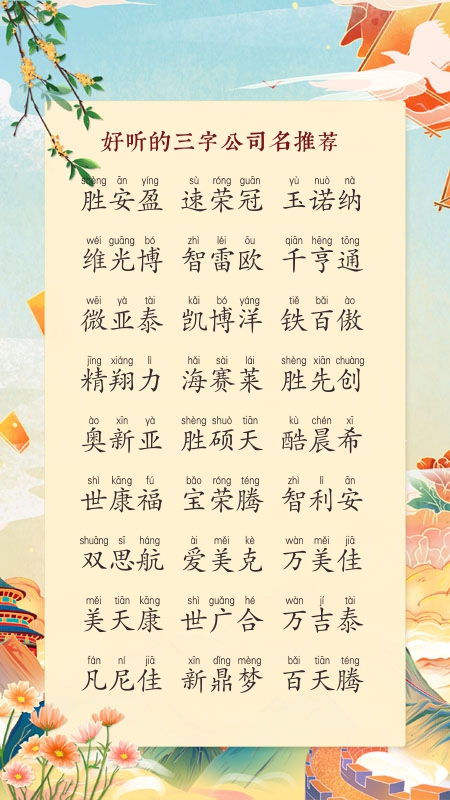 好听的三字公司名推荐
shèng ān yíng sù róng guān yù nuò nà
胜安盈 速荣冠 玉诺纳
wéi guāng bó zhì léi ōu qiān hēng tōng
维光博 智雷欧 千亨通
wēi yà tài kǎi bó yáng tiě bǎi ào
微亚泰 凯博洋 铁百傲
jīng xiáng lì hǎi sài lái shèng xiān chuàng
精翔力 海赛莱 胜先创
ào xīn yà shèng shuò tiān kù chén xī
奥新亚 胜硕天 酷晨希
shì kāng fú bǎo róng téng zhì lì ān
世康福 宝荣腾 智利安
shuāng sī háng ài měi kè wàn měi jiā
双思航 爱美克 万美佳
měi tiān kāng shì guǎng hé wàn jí tài
美天康 世广合 万吉泰
fán ní jiā xīn dǐng mèng bǎi tiān téng
凡尼佳 新鼎梦 百天腾